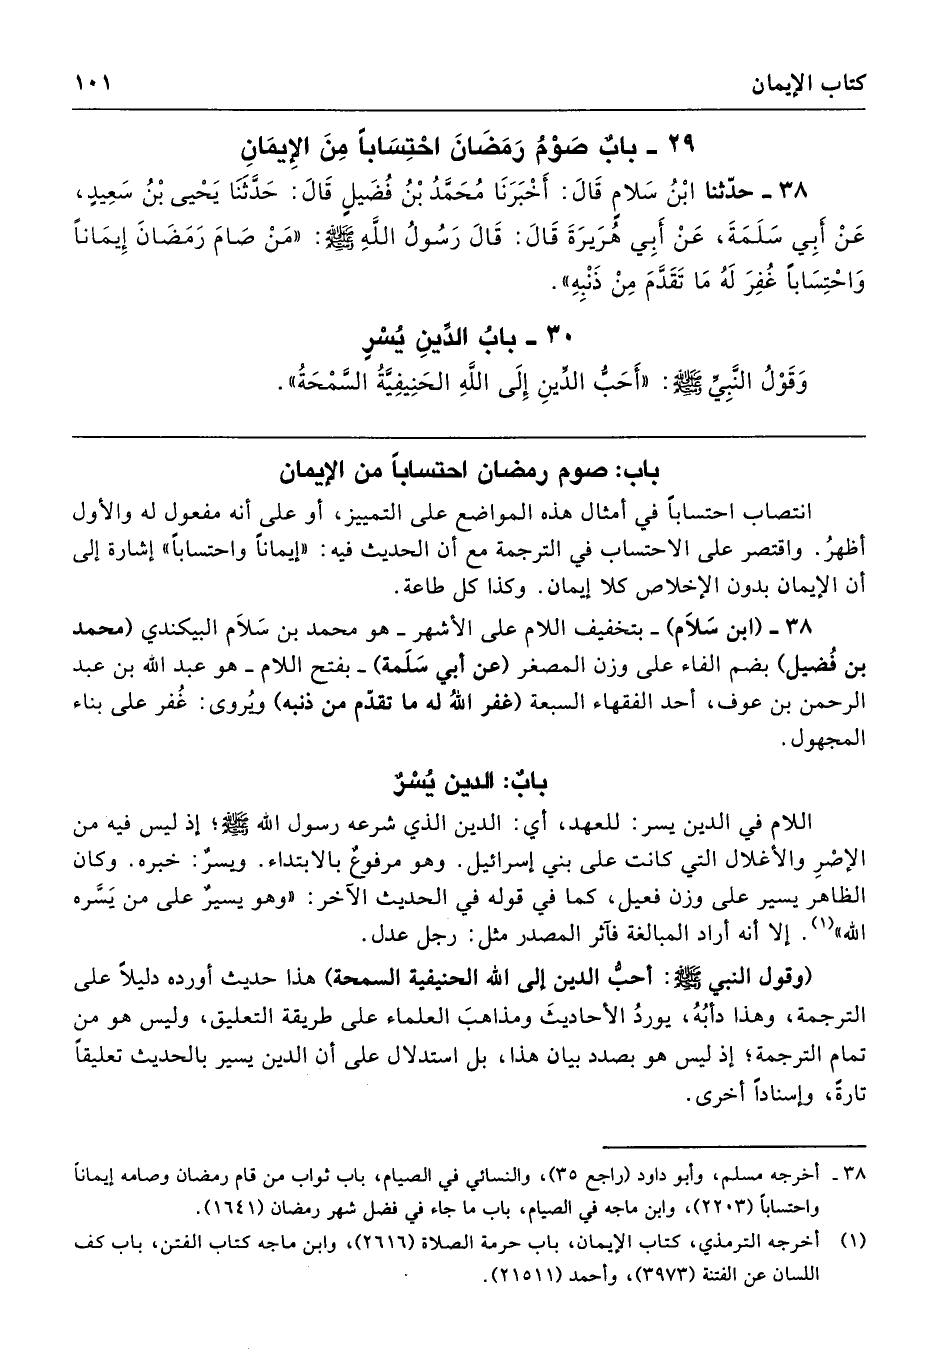 كتاب الإيمان ١٠١
٢٩ ـ بابٌ صَوْمُ رَمَضَانَ احْتِسَاباً مِنَ الإِيمَانِ
٣٨ ـ حدّثنا ابْنُ سَلاَمٍ قَالَ: أَخْبَرَنَا مُحَمَّدُ بْنُ فُضَيلٍ قَالَ: حَدَّثَنَا يَحْيى بْنُ سَعِيدٍ،
عَنْ أَبِي سَلَمَةَ، عَنْ أَبِي هُرَيرَةَ قَالَ: قَالَ رَسُولُ اللَّهِ ﷺ: «مَنْ صَامَ رَمَضَانَ إِيمَاناً
وَاحْتِسَاباً غُفِرَ لَهُ مَا تَقَدَّمَ مِنْ ذَنْبِهِ».
٣٠ ـ بابُ الدِّينِ يُسْرٍ
وَقَوْلُ النَّبِيِّ ﷺ: «أَحَبُّ الدِّينِ إِلَى اللَّهِ الحَنِيفِيَّةُ السَّمْحَةُ».
باب: صوم رمضان احتساباً من الإيمان
انتصاب احتساباً في أمثال هذه المواضع على التمييز، أو على أنه مفعول له والأول
أظهرُ. واقتصر على الاحتساب في الترجمة مع أن الحديث فيه: «إيماناً واحتساباً» إشارة إلى
أن الإيمان بدون الإخلاص كلا إيمان. وكذا كل طاعة.
٣٨ ـ (ابن سَلاَم) ـ بتخفيف اللام على الأشهر ـ هو محمد بن سَلاَم البيكندي (محمد
بن فُضيل) بضم الفاء على وزن المصغر (عن أبي سَلَمة) ـ بفتح اللام ـ هو عبد الله بن عبد
الرحمن بن عوف، أحد الفقهاء السبعة (غفر اللهُ له ما تقدّم من ذنبه) ويُروى: غُفر على بناء
المجهول.
بابٌ: الدين يُسْرٌ
اللام في الدين يسر: للعهد، أي: الدين الذي شرعه رسول الله ﷺ؛ إذ ليس فيه من
الإصْرِ والأغلال التي كانت على بني إسرائيل. وهو مرفوعٌ بالابتداء. ويسرٌ: خبره. وكان
الظاهر يسير على وزن فعيل، كما في قوله في الحديث الآخر: «وهو يسيرٌ على من يَسَّره
الله»(١). إلا أنه أراد المبالغة فآثر المصدر مثل: رجل عدل.
(وقول النبي ﷺ: أحبُّ الدين إلى الله الحنيفية السمحة) هذا حديث أورده دليلاً على
الترجمة، وهذا دأبُهُ، يوردُ الأحاديثَ ومذاهبَ العلماء على طريقة التعليق، وليس هو من
تمام الترجمة؛ إذ ليس هو بصدد بيان هذا، بل استدلال على أن الدين يسير بالحديث تعليقاً
تارةً، وإسناداً أخرى.
٣٨ـ أخرجه مسلم، وأبو داود (راجع ٣٥)، والنسائي في الصيام، باب ثواب من قام رمضان وصامه إيماناً
واحتساباً (٢٢٠٣)، وابن ماجه في الصيام، باب ما جاء في فضل شهر رمضان (١٦٤١).
(١) أخرجه الترمذي، كتاب الإيمان، باب حرمة الصلاة (٢٦١٦)، وابن ماجه كتاب الفتن، باب كف
اللسان عن الفتنة (٣٩٧٣)، وأحمد (٢١٥١١).